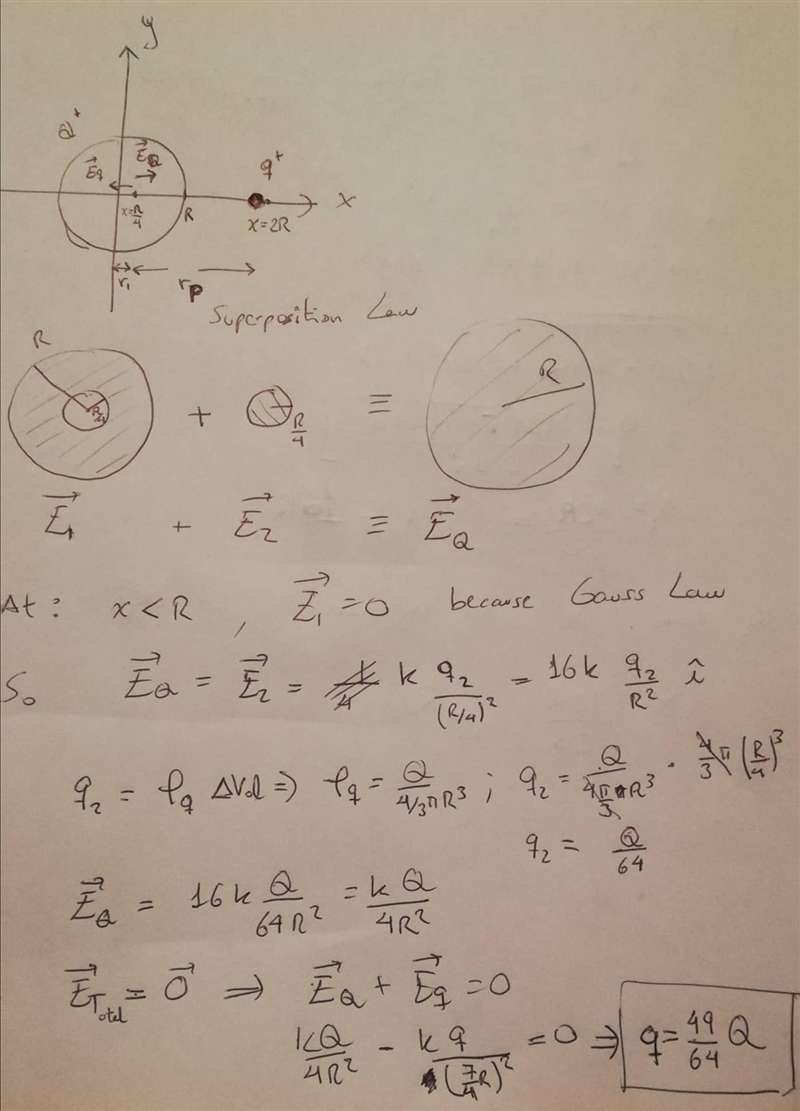 y
Q⁺
E⃗q E⃗Q q⁺
x=R/4 R x=2R x
r₁ rP
Superposition Law
R R/4 + R/4 ≡ R
E⃗₁ + E⃗₂ ≡ E⃗Q
At: x < R , E⃗₁ = 0 because Gauss Law
So E⃗Q = E⃗₂ = k q₂/(R/4)² = 16k q₂/R² î
q₂ = ρq ΔVol ⇒ ρq = Q/(4/3πR³) ; q₂ = Q/(4π/3 R³) · 4/3 π (R/4)³
q₂ = Q/64
E⃗Q = 16k Q/64R² = kQ/4R²
E⃗Total = 0⃗ ⇒ E⃗Q + E⃗q = 0
kQ/4R² - kq/(7/4 R)² = 0 ⇒ q = 49/64 Q